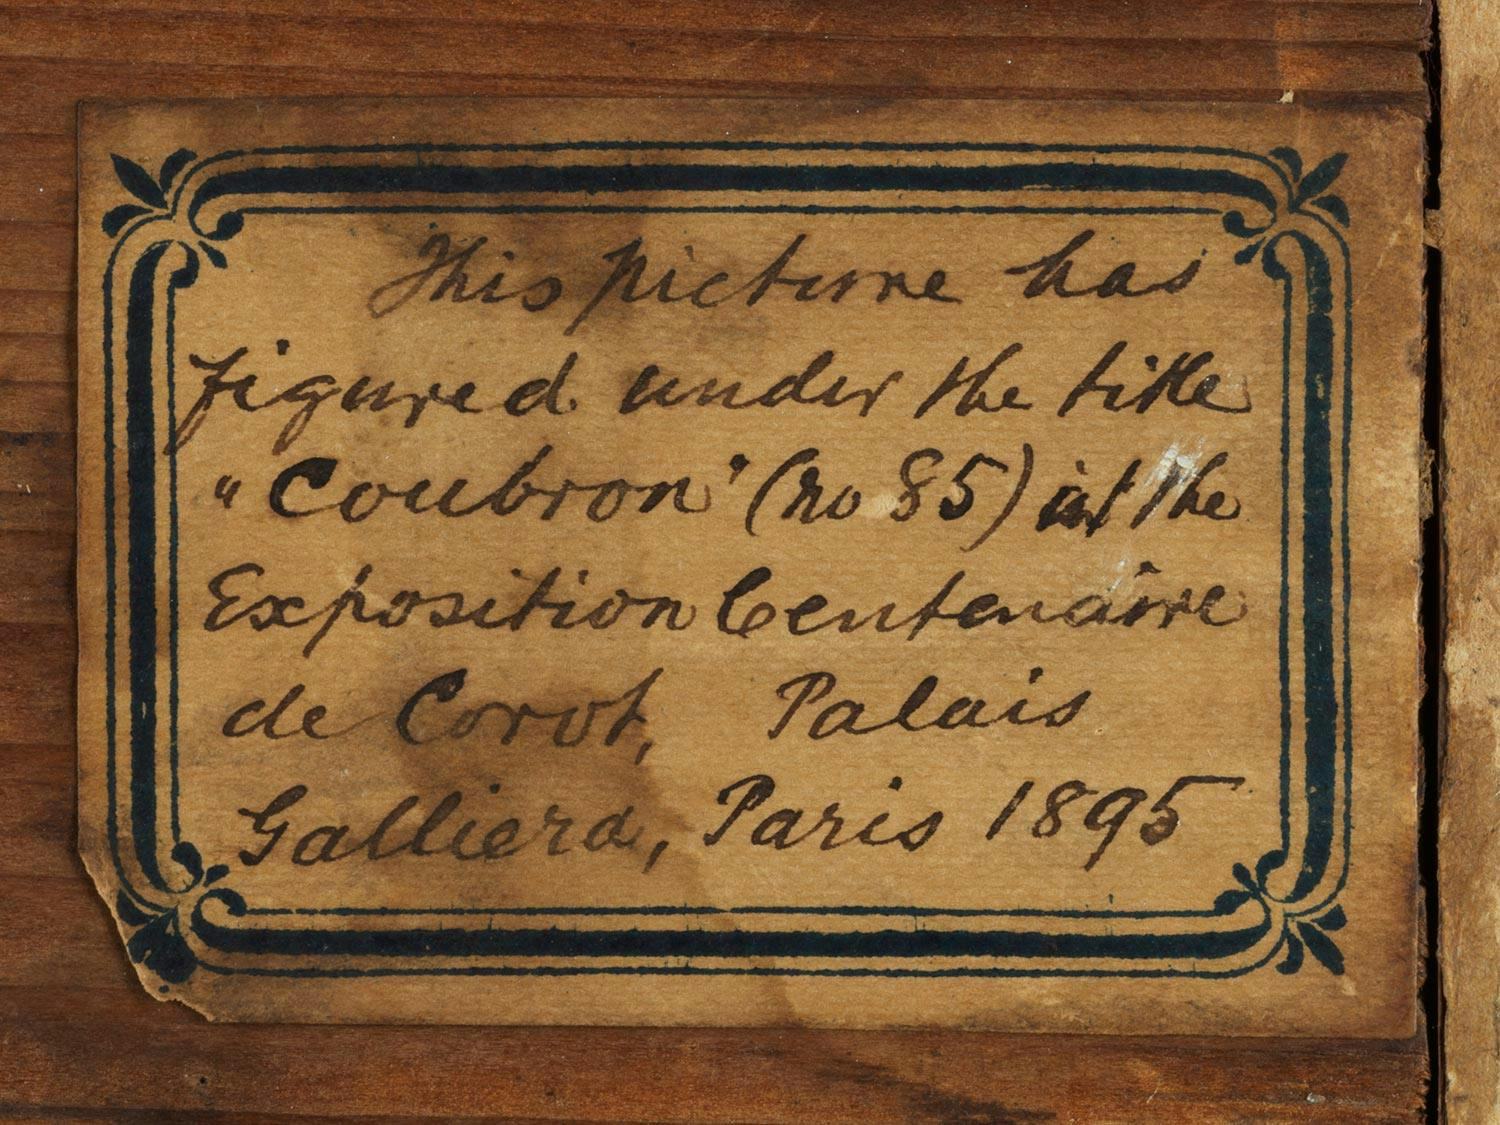 This picture has
figured under the title
"Coubron" (no 85) at the
Exposition Centenaire
de Corot, Palais
Galliera, Paris 1895